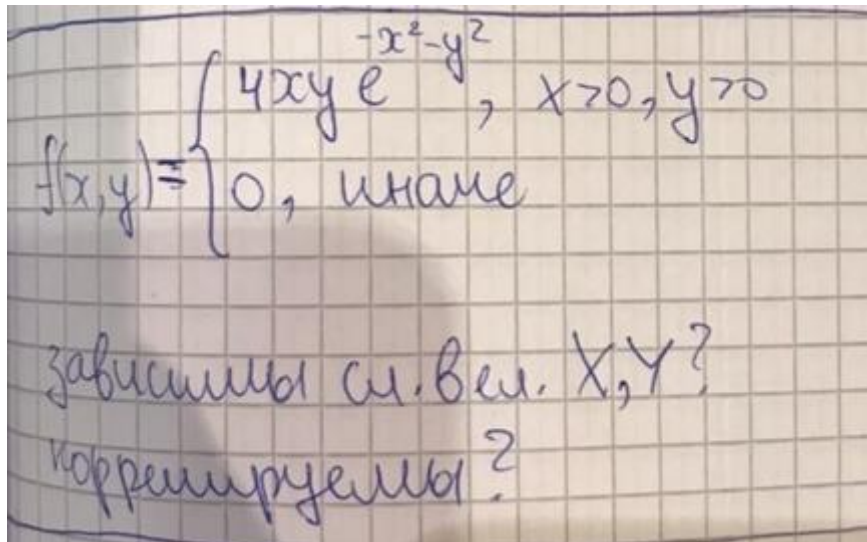 f(x,y)={4xye^{-x²-y²}, x>0, y>0
0, иначе
зависимы сл. вел. X,Y?
коррелируемы?